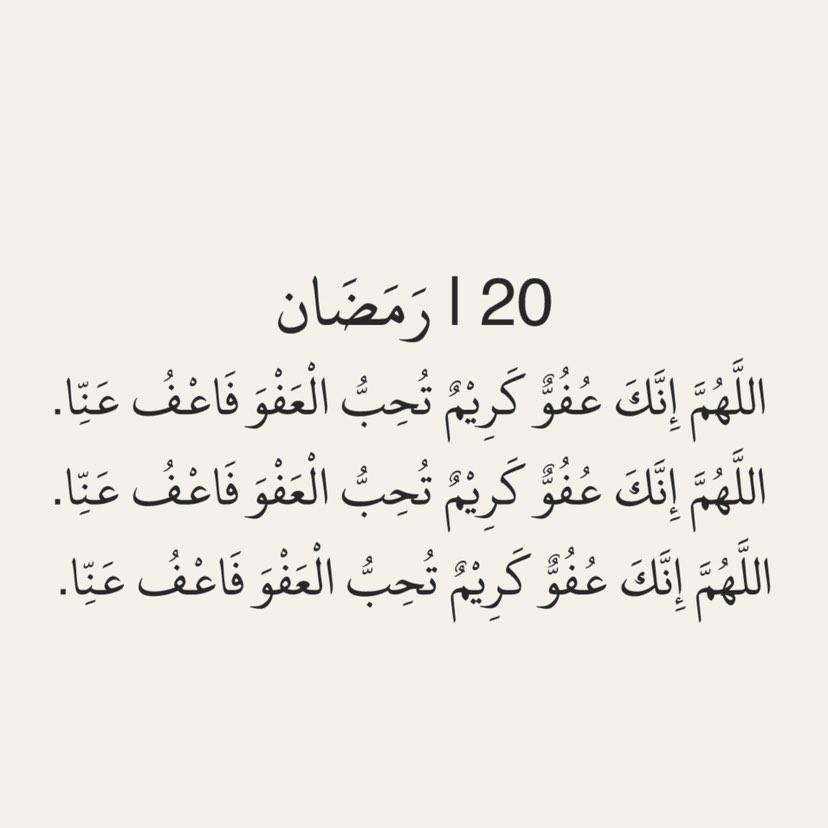 20 | رَمَضَان
اللَّهُمَّ إِنَّكَ عُفُوٌّ كَرِيْمٌ تُحِبُّ الْعَفْوَ فَاعْفُ عَنِّا.
اللَّهُمَّ إِنَّكَ عُفُوٌّ كَرِيْمٌ تُحِبُّ الْعَفْوَ فَاعْفُ عَنِّا.
اللَّهُمَّ إِنَّكَ عُفُوٌّ كَرِيْمٌ تُحِبُّ الْعَفْوَ فَاعْفُ عَنِّا.